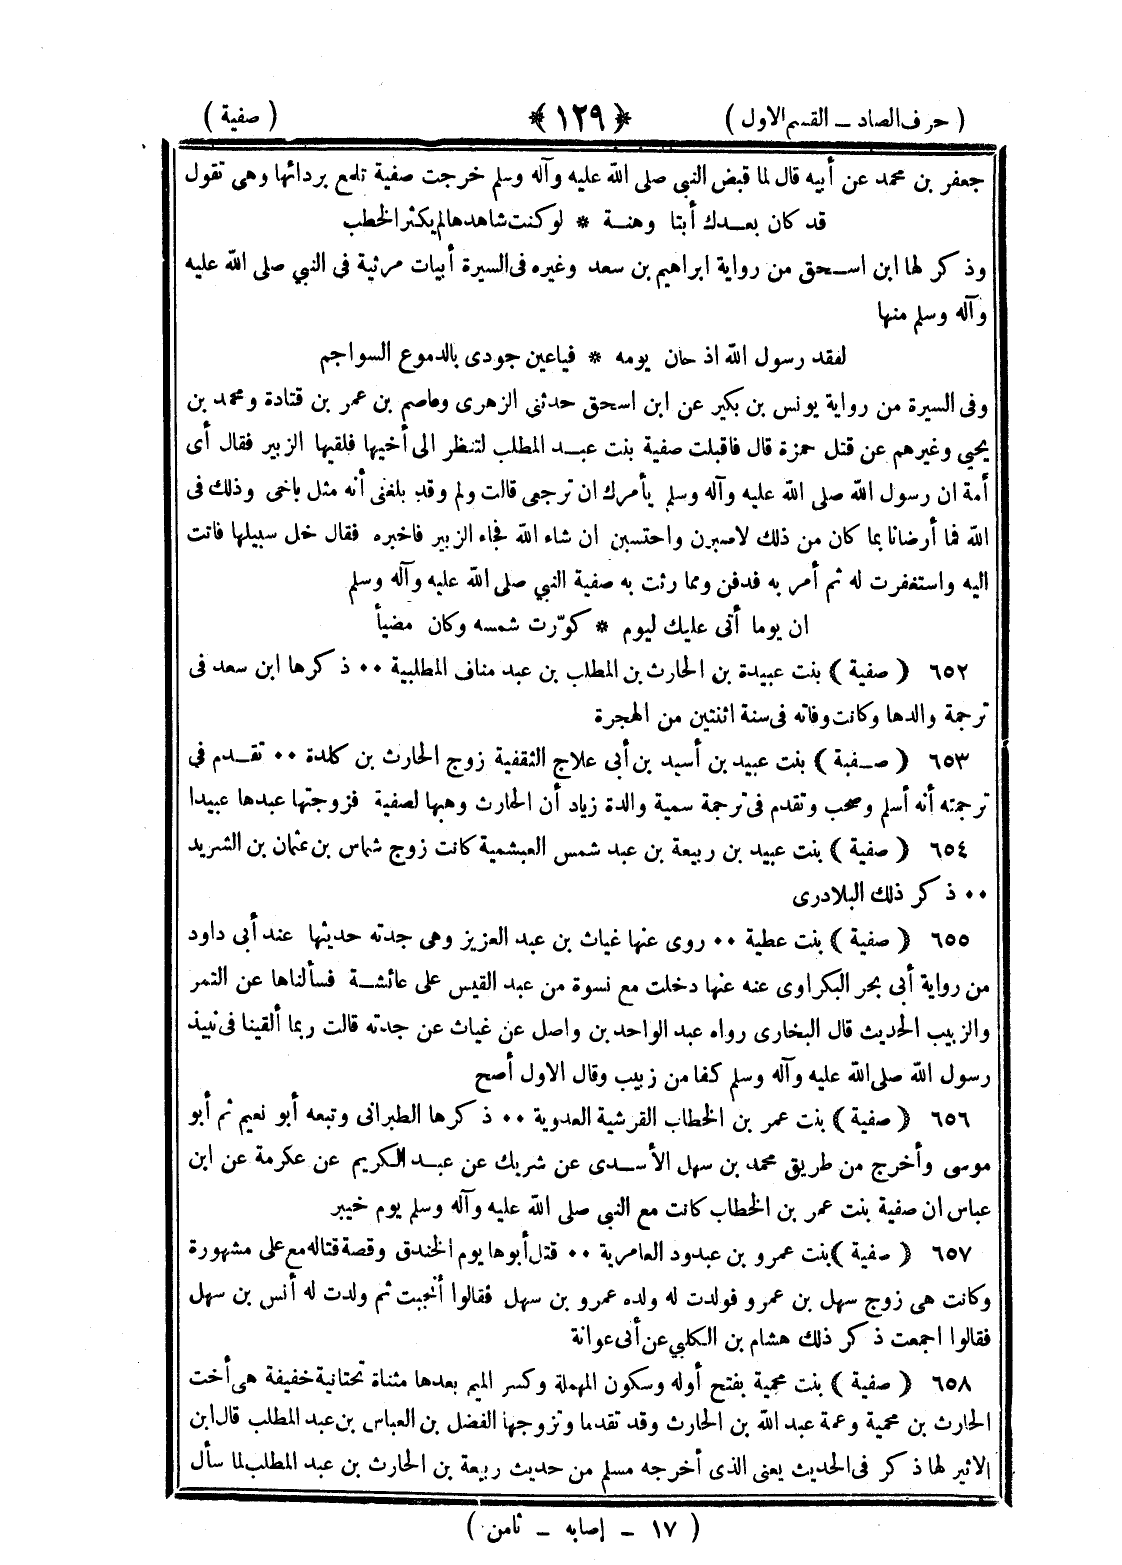 ( حرف الصاد ــ القسم الاول ) ﴿ ١٢٩ ﴾ ( صفية )
جعفر بن محمد عن أبيه قال لما قبض النبي صلى الله عليه وآله وسلم خرجت صفية تلمع بردائها وهى تقول
قد كان بعــدك أبنا وهنــة * لو كنت شاهدها لم يكثر الخطب
وذكر لها ابن اســحق من رواية ابراهيم بن سعد وغيره فى السيرة أبيات مرثية فى النبي صلى الله عليه
وآله وسلم منها
لفقد رسول الله اذ حان يومه * فياعين جودى بالدموع السواجم
وفى السيرة من رواية يونس بن بكير عن ابن اسحق حدثنى الزهرى وعاصم بن عمر بن قتادة ومحمد بن
يحيى وغيرهم عن قتل حمزة قال فاقبلت صفية بنت عبــد المطلب لتنظر الى أخيها فلقيها الزبير فقال أى
أمة ان رسول الله صلى الله عليه وآله وسلم يأمرك ان ترجعى قالت ولم وقد بلغنى أنه مثل باخى وذلك فى
الله فما أرضانا بما كان من ذلك لاصبرن واحتسبن ان شاء الله فجاء الزبير فاخبره فقال خل سبيلها فاتت
اليه واستغفرت له ثم أمر به فدفن ومما رثت به صفية النبي صلى الله عليه وآله وسلم
ان يوما أتى عليك ليوم * كوّرت شمسه وكان مضيأ
٦٥٢ ( صفية ) بنت عبيدة بن الحارث بن المطلب بن عبد مناف المطلبية ٠٠ ذكرها ابن سعد فى
ترجمة والدها وكانت وفاته فى سنة اثنتين من الهجرة
٦٥٣ ( صــفية ) بنت عبيد بن أسيد بن أبى علاج الثقفية زوج الحارث بن كلدة ٠٠ تقــدم في
ترجمته أنه أسلم وصحب وتقدم فى ترجمة سمية والدة زياد أن الحارث وهبها لصفية فزوجتها عبدها عبيدا
٦٥٤ ( صفية ) بنت عبيد بن ربيعة بن عبد شمس العبشمية كانت زوج شماس بن عثمان بن الشريد
٠٠ ذكر ذلك البلادرى
٦٥٥ ( صفية ) بنت عطية ٠٠ روى عنها غياث بن عبد العزيز وهى جدته حديثها عند أبى داود
من رواية أبى بحر البكراوى عنه عنها دخلت مع نسوة من عبد القيس على عائشــة فسألناها عن التمر
والزبيب الحديث قال البخارى رواه عبد الواحد بن واصل عن غياث عن جدته قالت ربما ألقينا فى نبيذ
رسول الله صلى الله عليه وآله وسلم كفا من زبيب وقال الاول أصح
٦٥٦ ( صفية ) بنت عمر بن الخطاب القرشية العدوية ٠٠ ذكرها الطبرانى وتبعه أبو نعيم ثم أبو
موسى وأخرج من طريق محمد بن سهل الأســدى عن شريك عن عبــد الكريم عن عكرمة عن ابن
عباس ان صفية بنت عمر بن الخطاب كانت مع النبى صلى الله عليه وآله وسلم يوم خيبر
٦٥٧ ( صفية ) بنت عمرو بن عبدود العامرية ٠٠ قتل أبوها يوم الخندق وقصة قتاله مع على مشهورة
وكانت هى زوج سهل بن عمرو فولدت له ولده عمرو بن سهل فقالوا أنجبت ثم ولدت له أنس بن سهل
فقالوا اجمعت ذكر ذلك هشام بن الكلبي عن أبى عوانة
٦٥٨ ( صفية ) بنت محمية بفتح أوله وسكون المهملة وكسر الميم بعدها مثناة تحتانية خفيفة هى أخت
الحارث بن محمية وعمة عبد الله بن الحارث وقد تقدما وتزوجها الفضل بن العباس بن عبد المطلب قال ابن
الاثير لها ذكر فى الحديث يعنى الذى أخرجه مسلم من حديث ربيعة بن الحارث بن عبد المطلب لما سأل
( ١٧ ــ إصابه ــ ثامن )